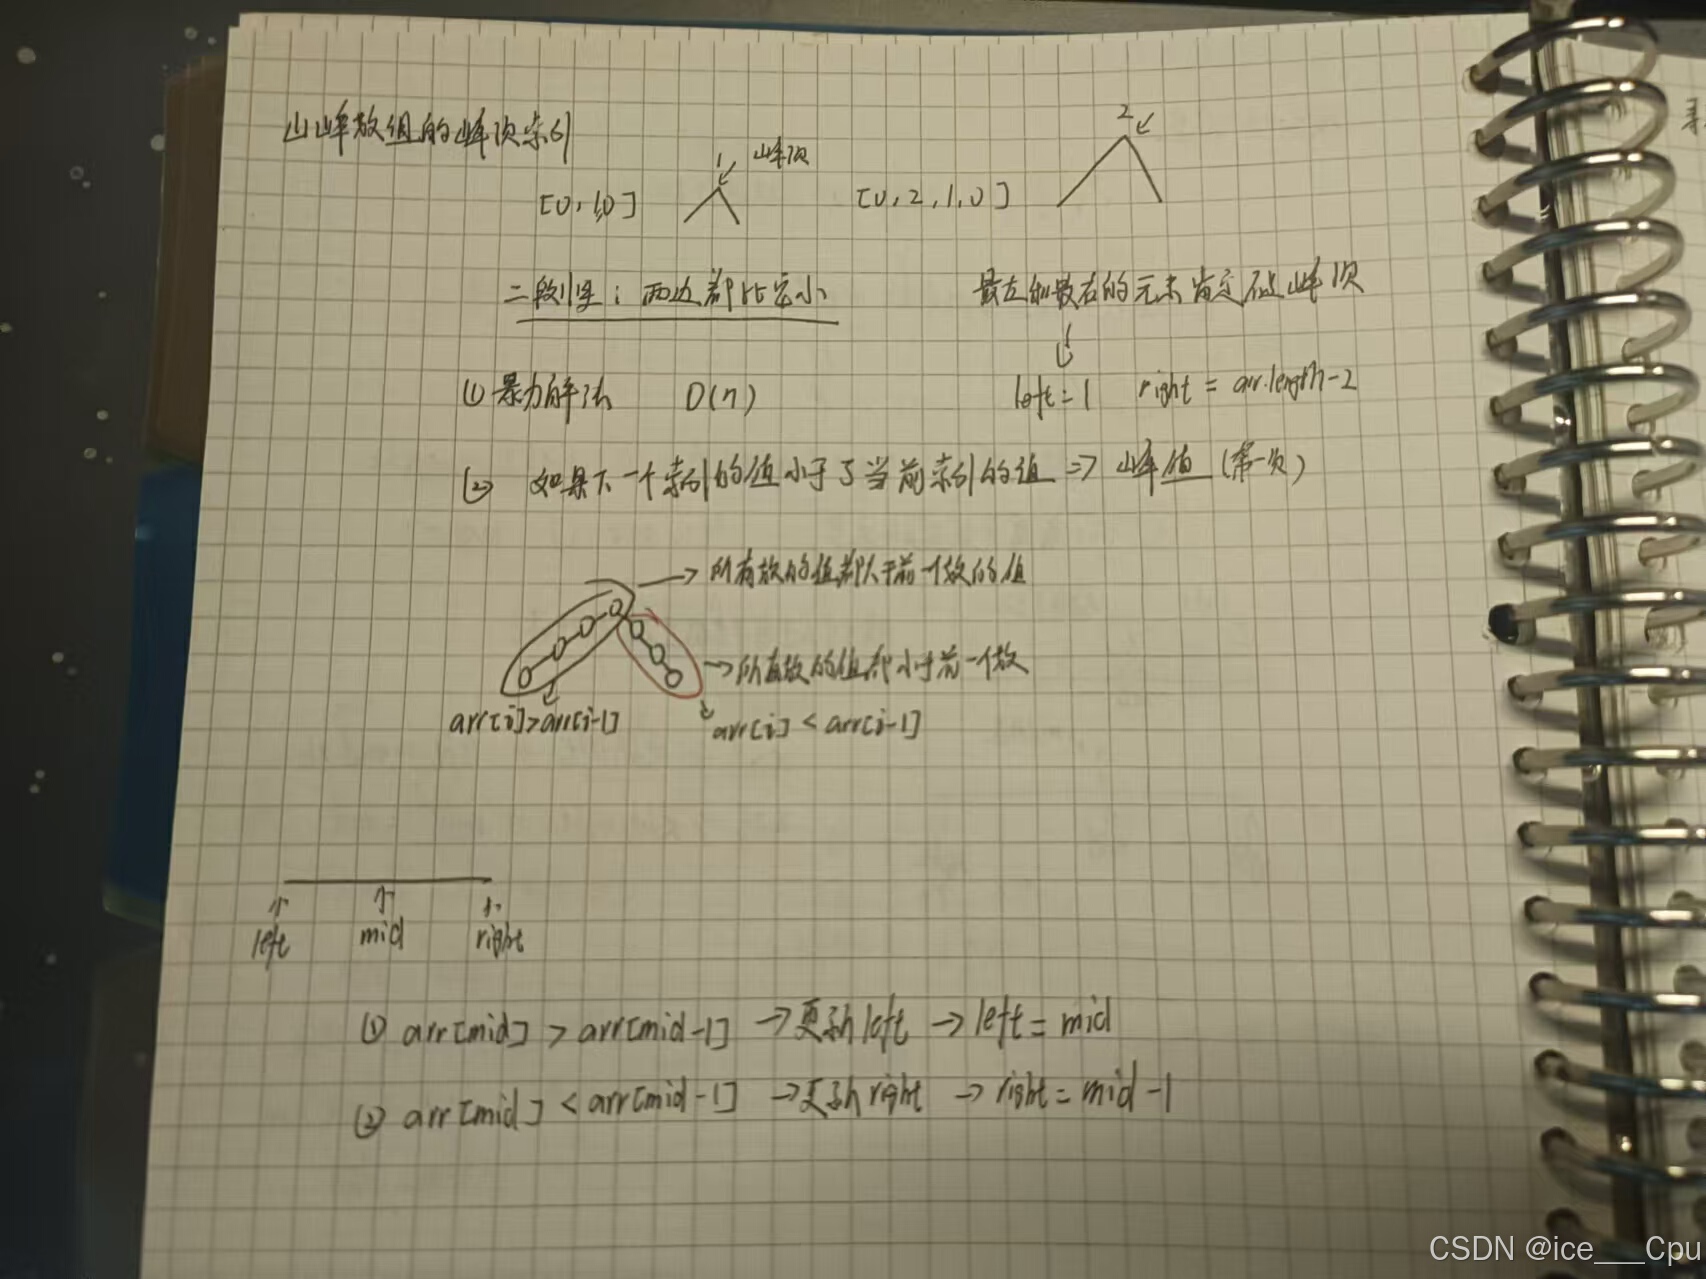 山峰数组的峰顶索引
1 峰顶
[0,1,0]
2
[0,2,1,0]
二段性:两边都比它小
最左和最右的元素肯定不是峰顶
left=1 right = arr.length-2
① 暴力解法 O(n)
② 如果下一个索引的值小于了当前索引的值 => 峰值(第一次)
所有数的值都大于前一个数的值
所有数的值都小于前一个数
arr[i]>arr[i-1]
arr[i] < arr[i-1]
left mid right
① arr[mid] > arr[mid-1] →更新left → left = mid
② arr[mid] < arr[mid-1] →更新right → right = mid -1
CSDN @ice___Cpu